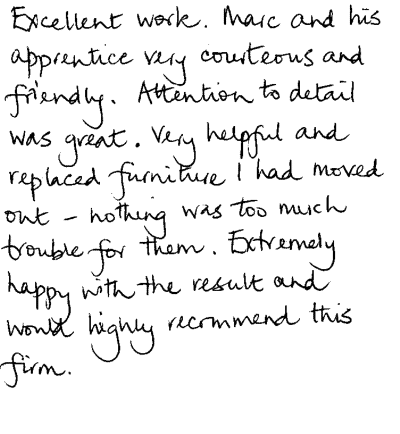 Excellent work. Marc and his
apprentice very courteous and
friendly. Attention to detail
was great. Very helpful and
replaced furniture I had moved
out – nothing was too much
trouble for them. Extremely
happy with the result and
would highly recommend this
firm.